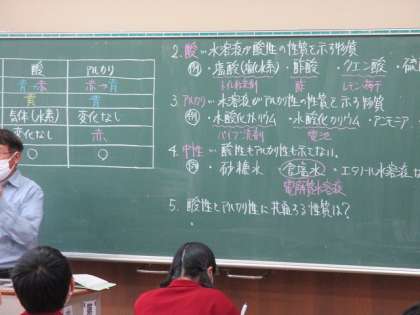 酸
アルカリ
青→赤
赤→青
黄
青
気体(水素)
変化なし
変化なし
赤
○
○
2. 酸…水溶液が酸性の性質を示す物質
例・塩酸(塩化水素)・酢酸・クエン酸・硫
トイレ用洗剤 酢 レモン・梅干
3. アルカリ…水溶液がアルカリ性の性質を示す物質
例・水酸化ナトリウム・水酸化カリウム・アンモニア
パイプ洗剤 電池
4. 中性…酸性もアルカリ性も示さない。
例・砂糖水・食塩水・エタノール水溶液
電解質水溶液
5. 酸性とアルカリ性に共通する性質は?